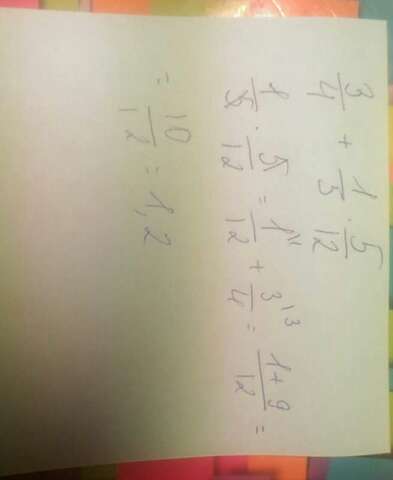 3/4 + 1/5 · 5/12
1/5 · 5/12 = 1\1/12 + 3\3/4 = 1+9/12 =
= 10/12 = 1,2